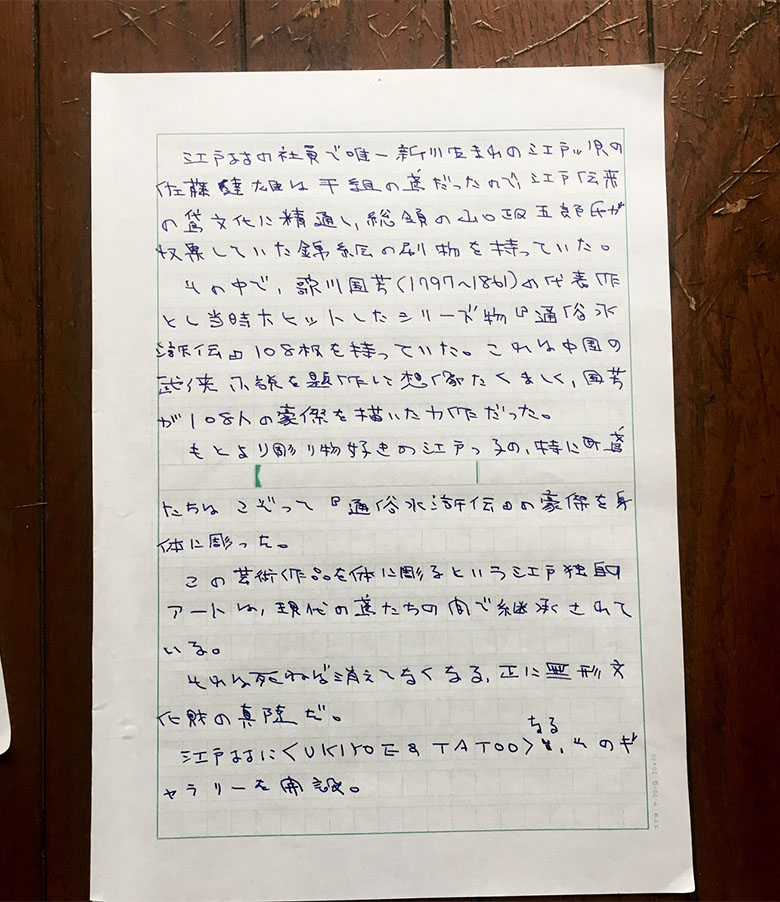 江戸ままの社員で唯一新川生まれの江戸ッ児の
佐藤健雄は千組の鳶だったので、江戸伝来
の鳶文化に精通し、総領の山口政五郎氏が
収集していた錦絵の刷物を持っていた。
その中で、歌川国芳(1797〜1861)の代表作
とし当時大ヒットしたシリーズ物『通俗水
滸伝』108枚を持っていた。これは中国の
武侠小説を題作に想像たくましく、国芳
が108人の豪傑を描いた力作だった。
もとより彫り物好きの江戸っ子の、特に町鳶
たちはこぞって『通俗水滸伝』の豪傑を身
体に彫った。
この芸術作品を体に彫るという江戸独自
アートは、現代の鳶たちの間で継承されて
いる。
それは死ねば消えてなくなる、正に無形文
化財の真陸だ。
江戸ままに〈UKIYOE & TATOO〉なる、そのギ
ャラリーを開設。